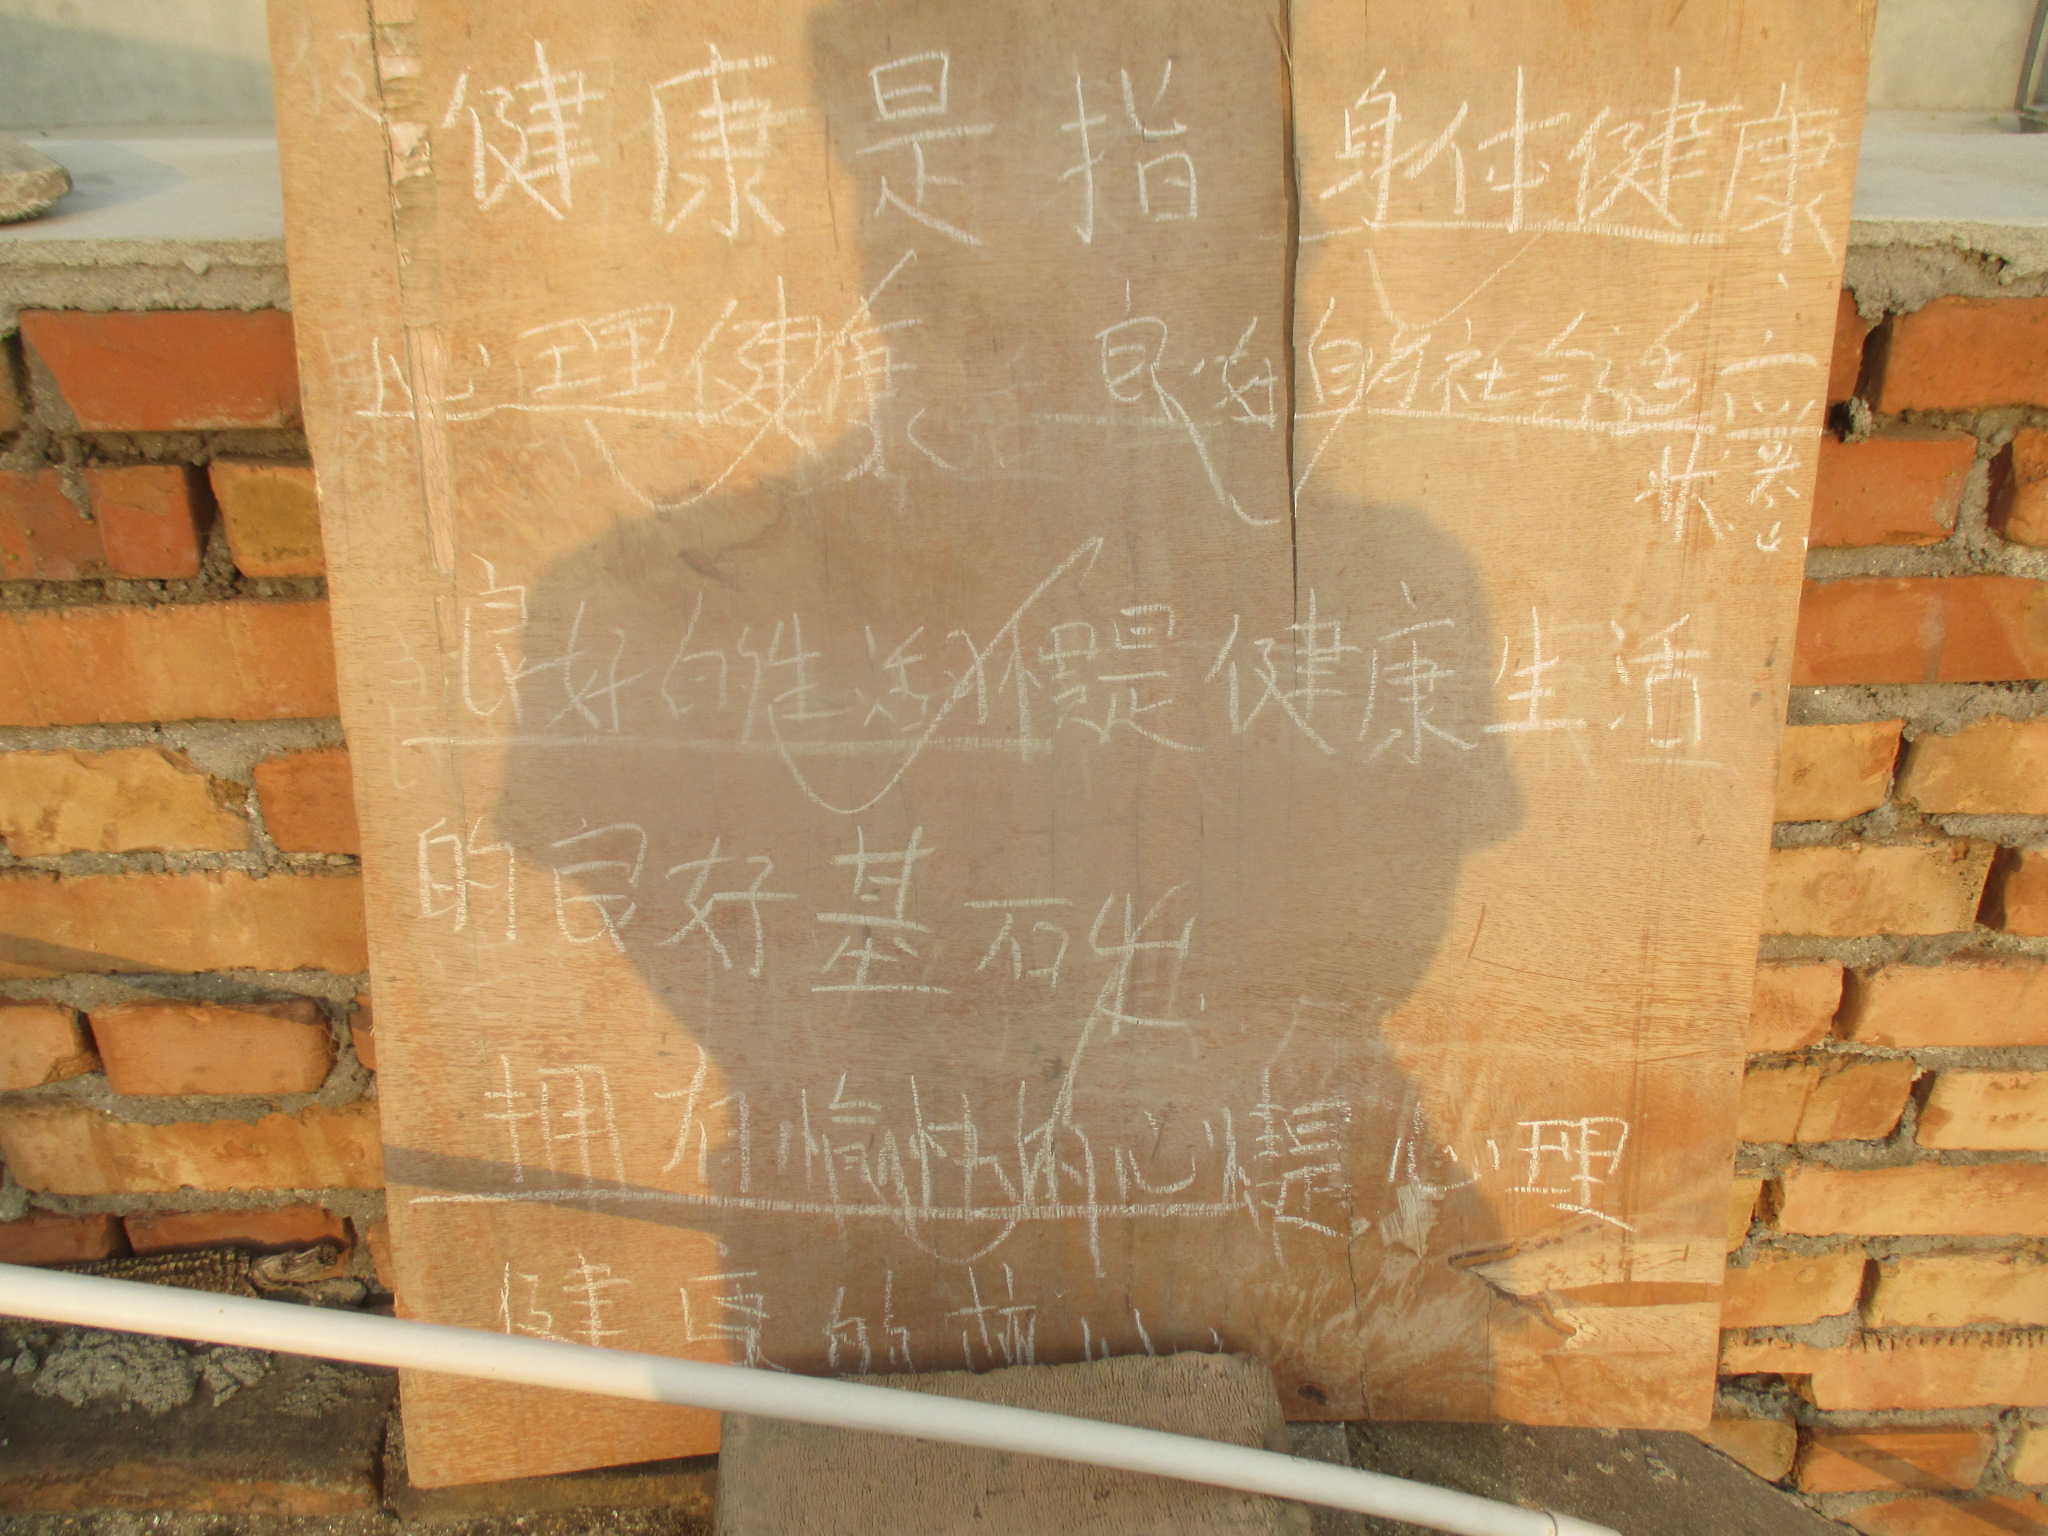 健康是指身体健康、
心理健康 良好的社会适应
状态
良好的生活习惯是健康生活
的良好基石出
拥有愉快的心情是心理
健康的核心